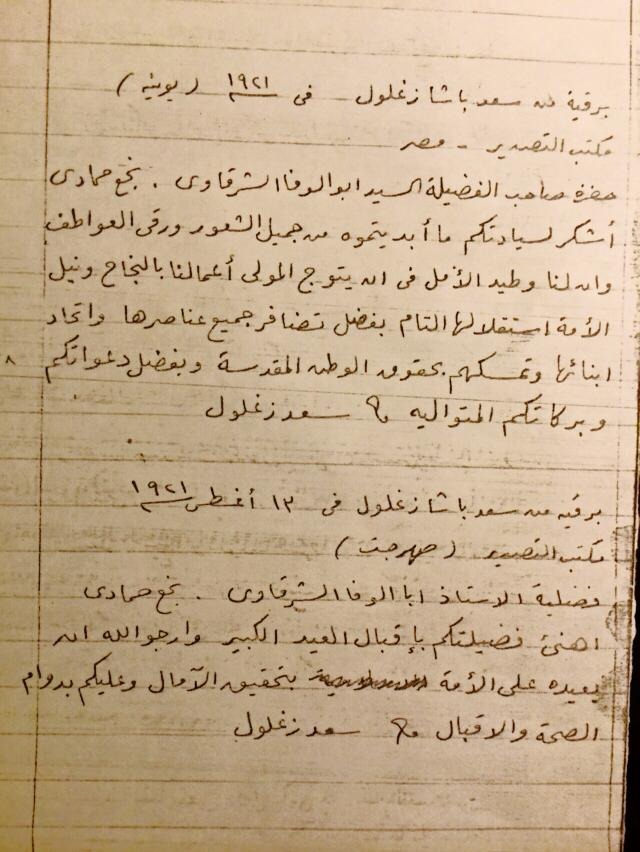 برقية من سعد باشا زغلول فى ١٩٢١ (يونيه)
مكتب التصدير - مصر
حضرة صاحب الفضيلة السيد ابو الوفا الشرقاوى . نجع حمادى
أشكر لسيادتكم ما أبديتموه من جميل الشعور ورقى العواطف
وان لنا وطيد الأمل فى ان يتوج المولى أعمالنا بالنجاح ونيل
الأمة استقلالها التام بفضل تضافر جميع عناصرها واتحاد
ابنائها وتمسكهم بحقوق الوطن المقدسة وبفضل دعواتكم
وبركاتكم المتواليه سعد زغلول
برقيه من سعد باشا زغلول فى ١٣ أغسطس ١٩٢١
مكتب التصدير (صهرجت)
فضيلة الاستاذ ابا الوفا الشرقاوى . نجع حمادى
اهنئ فضيلتكم بإقبال العيد الكبير وارجو الله ان
يعيده على الأمة بتحقيق الآمال وعليكم بدوام
الصحة والاقبال سعد زغلول